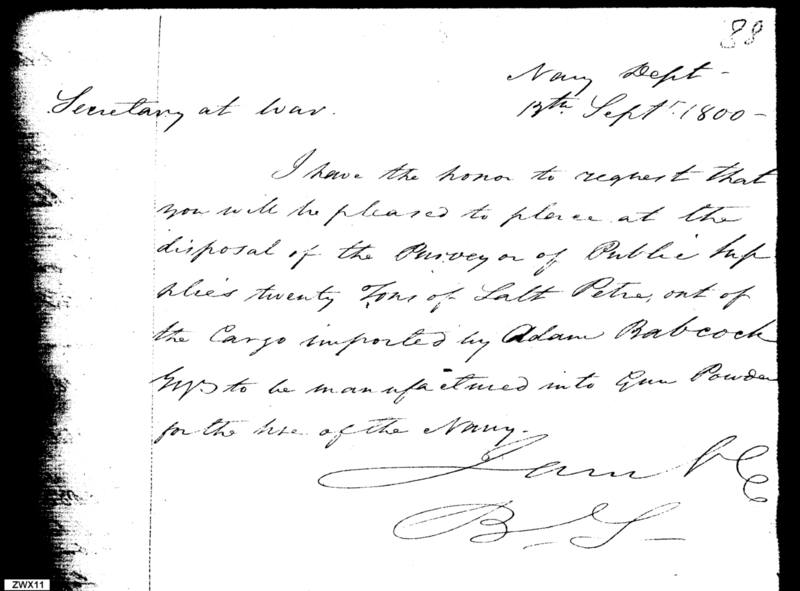 88
Navy Dept -
Secretary at War.
Septr. 1800 -
I have the honor to request that
you will be pleased to place at the
disposal of the Purveyor of Public Sup
plies twenty Tons of Salt Petre, out of
the Cargo imported by Adam Babcock
to be manufactured into Gun Powder
for the Use of the Navy.
I am &c
B S
ZWX11